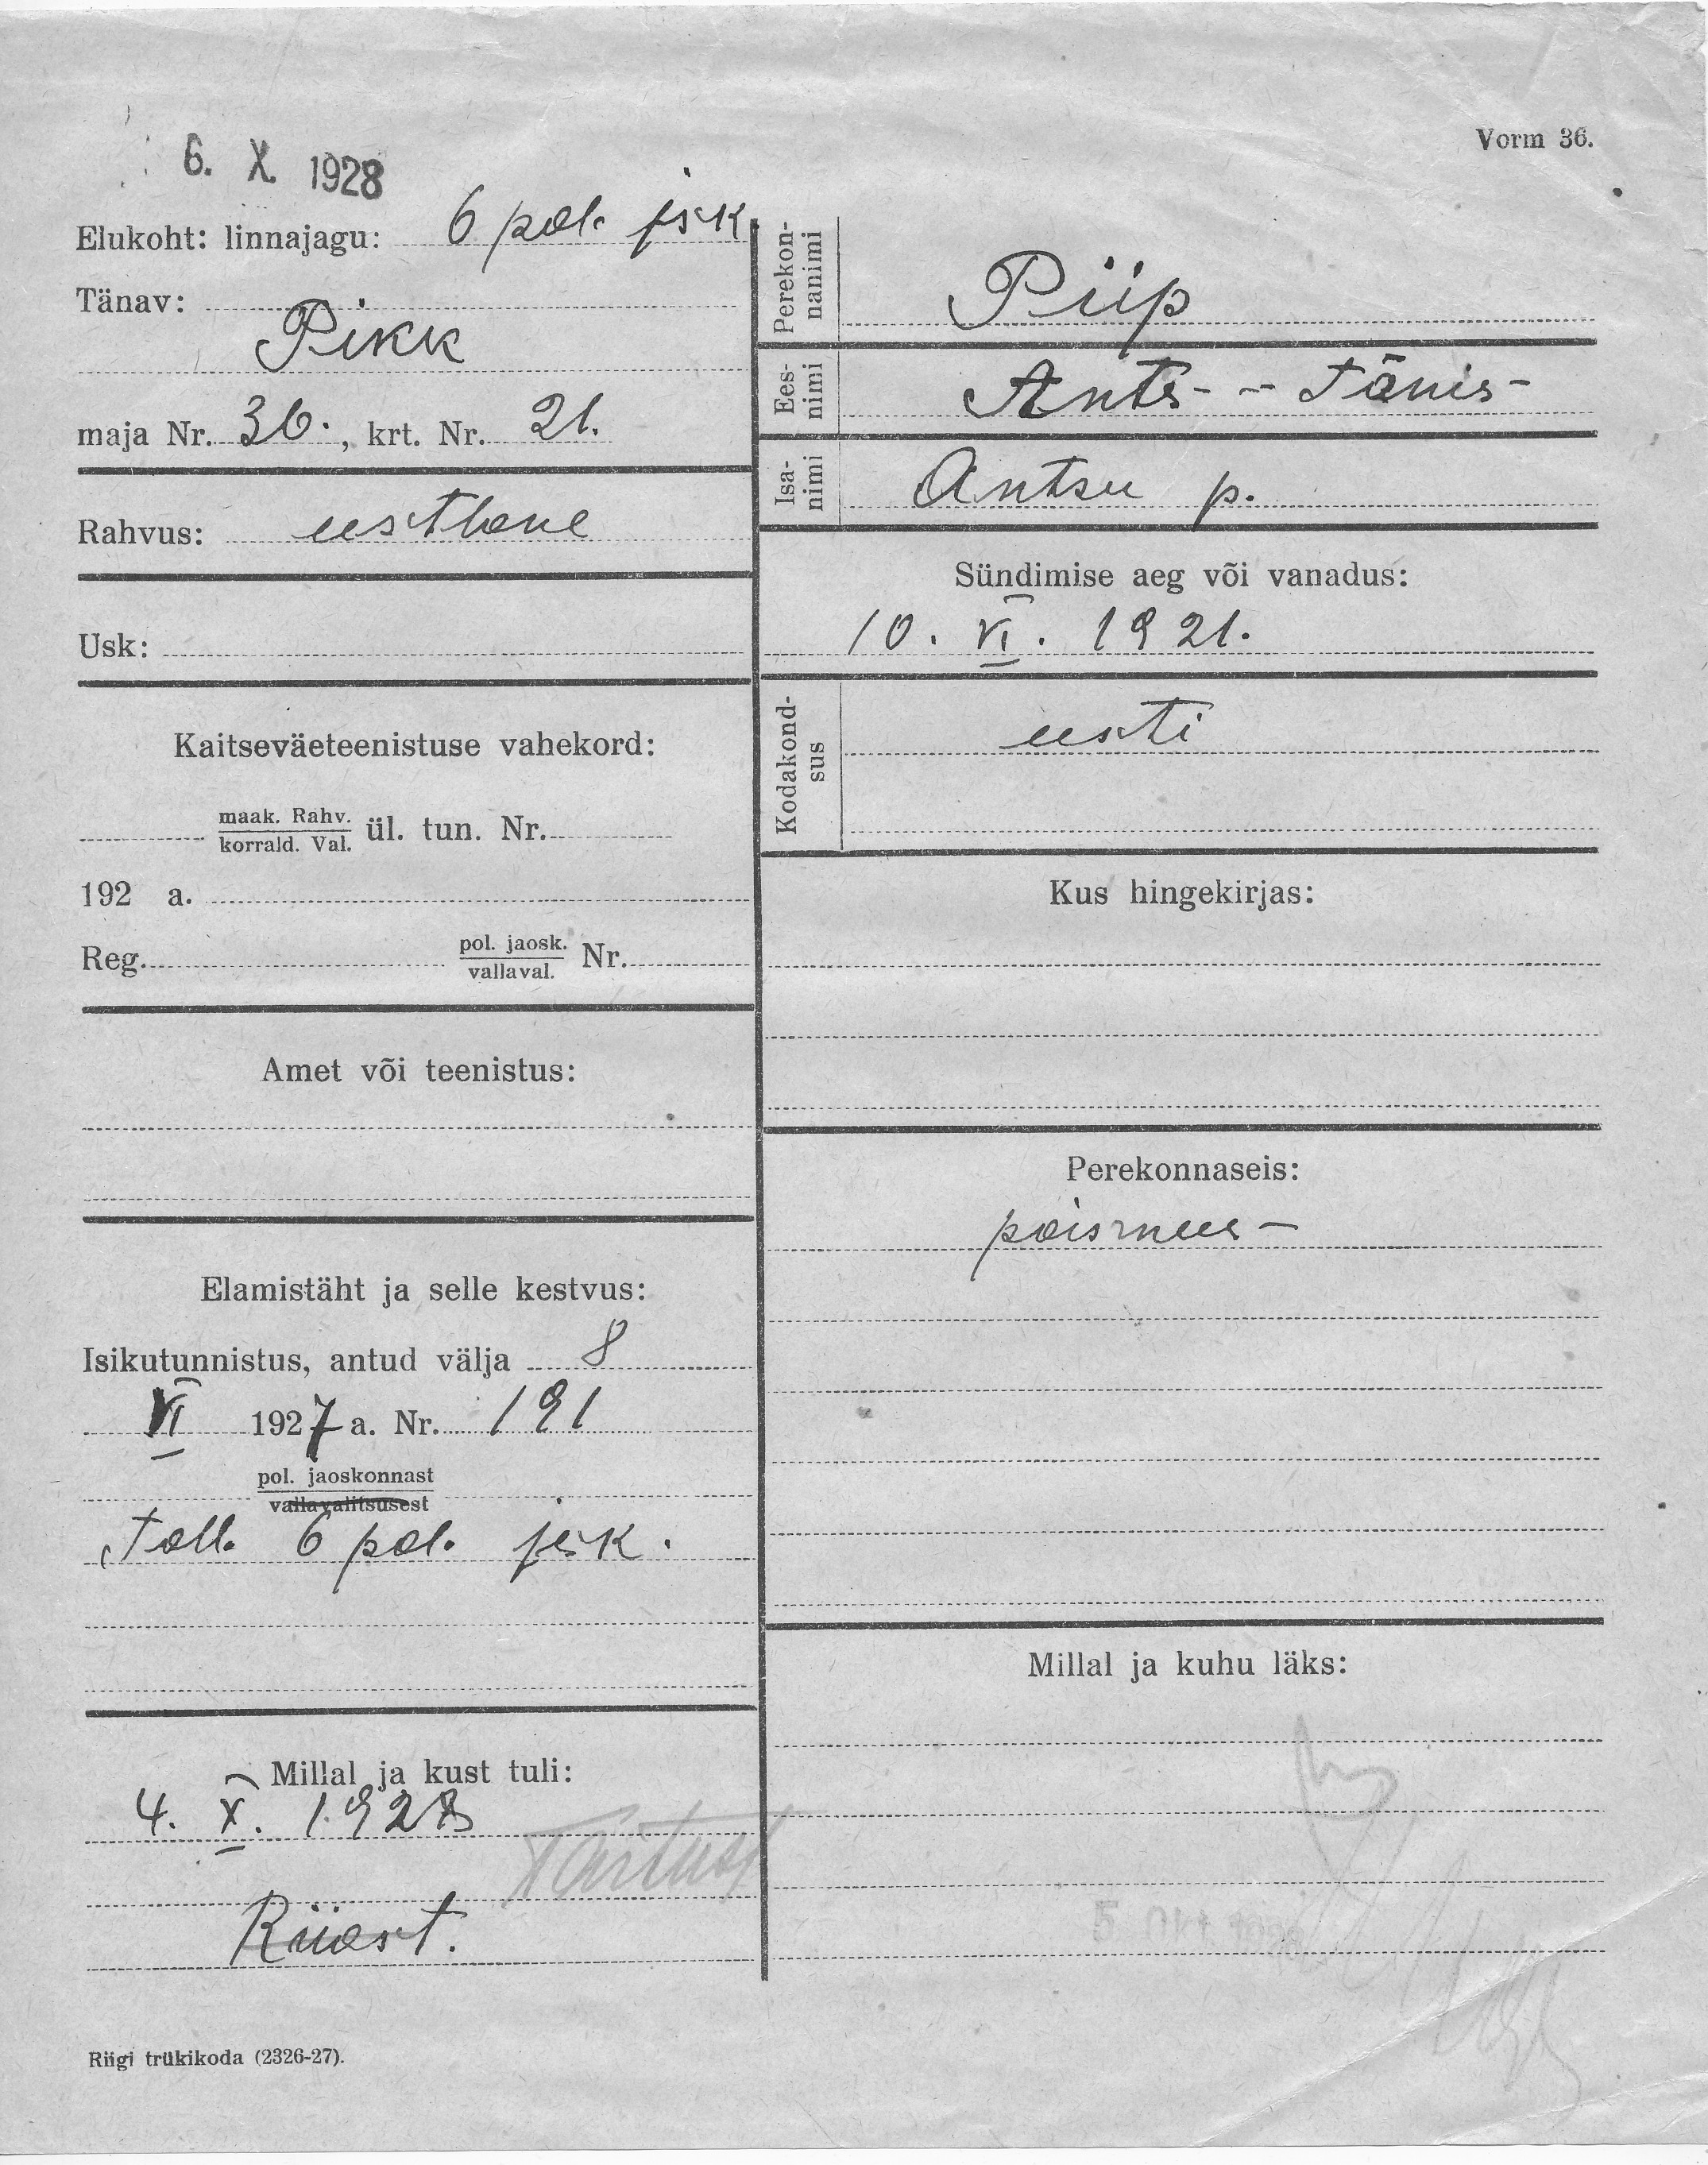 Vorm 36.
6. X. 1928
Elukoht: linnajagu: 6 pol. jsk
Tänav:
Pikk
maja Nr. 36., krt. Nr. 21.
Rahvus: eestlane
Usk:
Kaitseväeteenistuse vahekord:
maak. Rahv.
korrald. Val. ül. tun. Nr.
192 a.
Reg. pol. jaosk.
vallaval. Nr.
Amet või teenistus:
Elamistäht ja selle kestvus:
Isikutunnistus, antud välja 8
VI 1927 a. Nr. 191
pol. jaoskonnast
vallavalitsusest
Tall. 6 pol. jsk.
Millal ja kust tuli:
4. X. 1928
Tartust
Riiast.
Perekon-
nanimi
Piip
Ees-
nimi
Ants - - Tõnis -
Isa-
nimi
Antsu p.
Sündimise aeg või vanadus:
10. VI. 1921.
Kodakond-
sus
eesti
Kus hingekirjas:
Perekonnaseis:
poismees -
Millal ja kuhu läks:
5. OKT. 1928
Riigi trükikoda (2326-27).